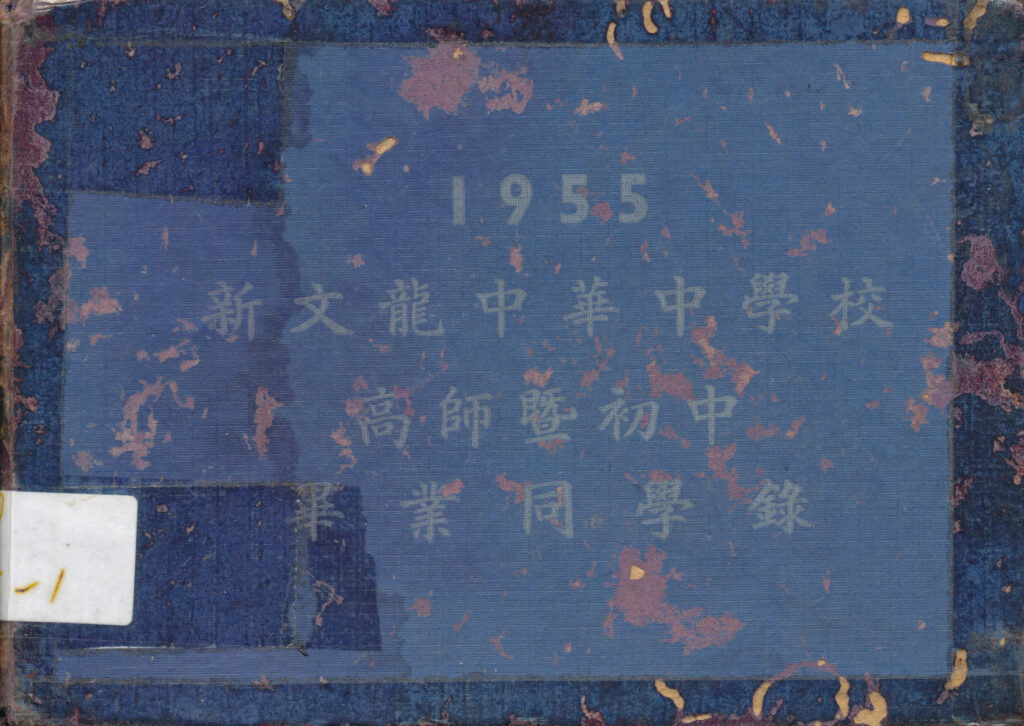 1955
新文龍中華中學校
高師暨初中
畢業同學錄
-1